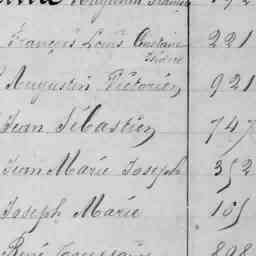 François Louis Constant Isidore 221
Augustin Victorien 921
Jean Sébastien 747
Jean Marie Joseph 352
Joseph Marie 105
René Toussaint 898